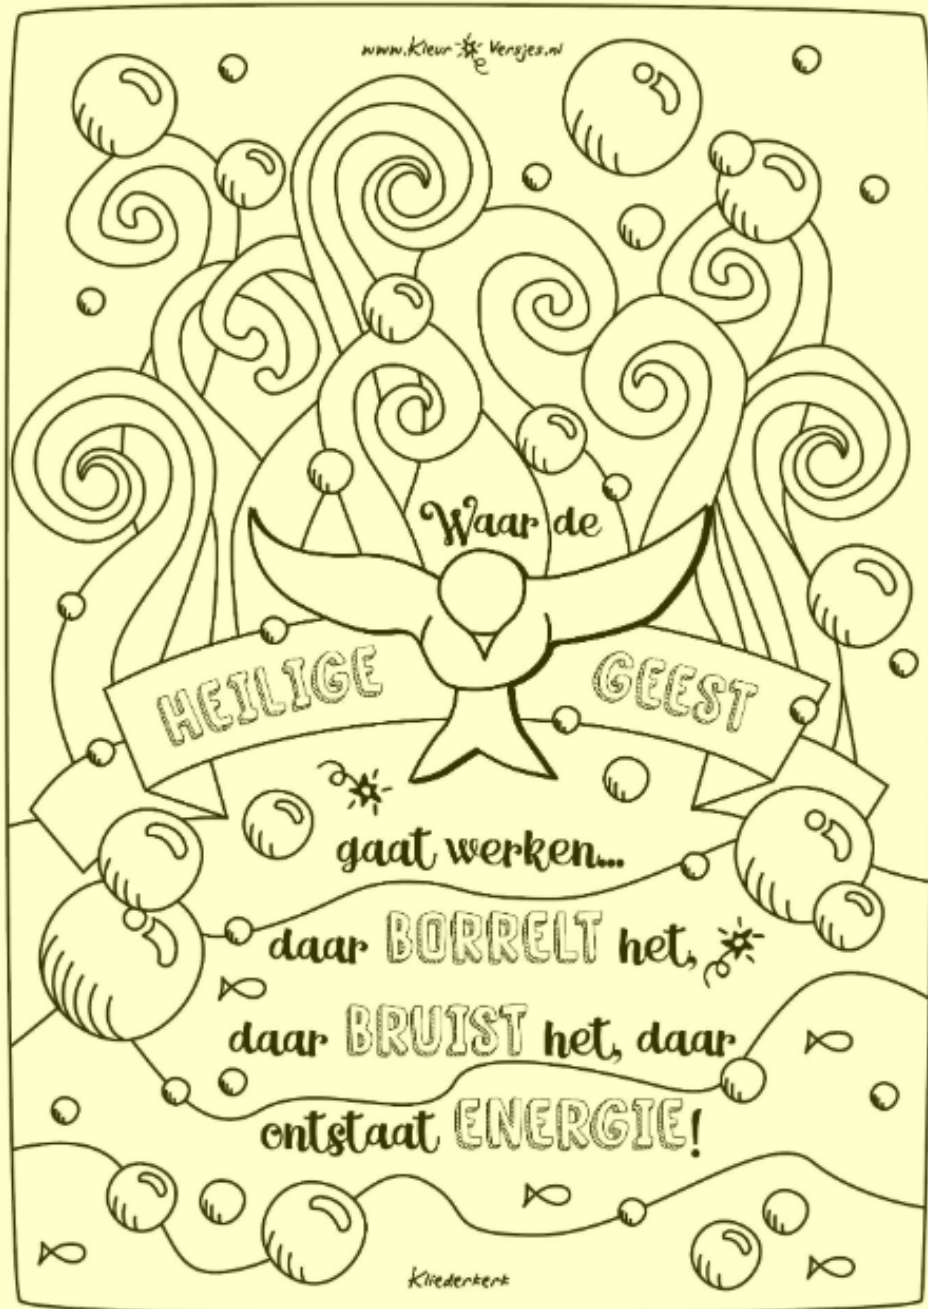 www.Kleur e Versjes.nl
Waar de
HEILIGE GEEST
gaat werken...
daar BORRELT het,
daar BRUIST het, daar
ontstaat ENERGIE!
Kliederkerk